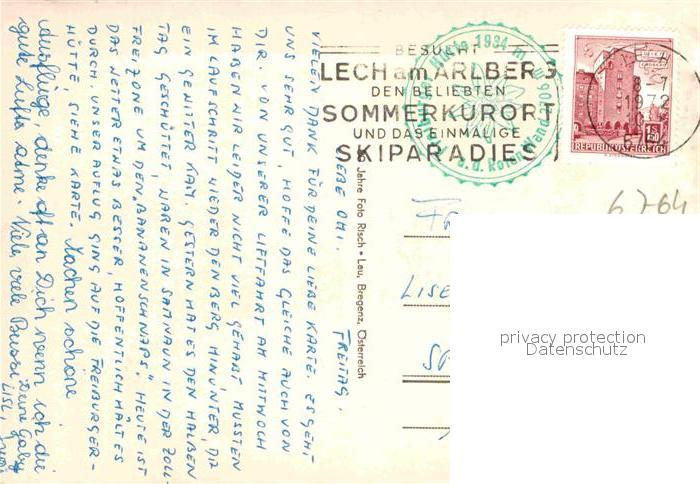 FREITAG,
LIEBE OMI.
VIELEN DANK FÜR DEINE LIEBE KARTE. ES GEHT
UNS SEHR GUT, HOFFE DAS GLEICHE AUCH VON
DIR. VON UNSERER LIFTFAHRT AM MITTWOCH
HABEN WIR LEIDER NICHT VIEL GEHABT, MUSSTEN
IM LAUFSCHRITT WIEDER DEN BERG HINUNTER, DA
EIN GEWITTER KAM. GESTERN HAT ES DEN HALBEN
TAG GESCHÜTTET, WAREN IN SAMNAUN IN DER ZOLL-
FREIZONE UM DEN „BANANENSCHNAPS". HEUTE IST
DAS WETTER ETWAS BESSER, HOFFENTLICH HÄLT ES
DURCH. UNSER AUFLUG GING AUF DIE FREIBURGER-
HÜTTE SIEHE KARTE. Machen schöne
Ausflüge, denke oft an Dich wenn ich die
gute Luft atme. Viele, viele Bussi Deine Gaby
LISL,
Jahre Foto Risch • Lau, Bregenz, Österreich
BESUCHT
LECH am ARLBERG
DEN BELIEBTEN
SOMMERKURORT
UND DAS EINMALIGE
SKIPARADIES
1934 m
a.d. Roten Wand
8-7
1972
1S50
REPUBLIK ÖSTERREICH
6764
LISE
privacy protection
Datenschutz